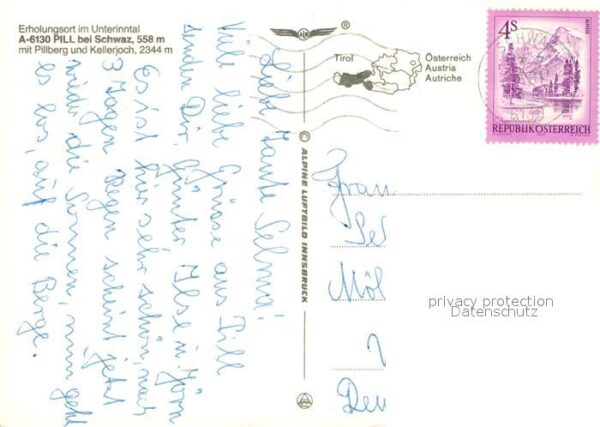 Erholungsort im Unterinntal
A-6130 PILL bei Schwaz, 558 m
mit Pillberg und Kellerjoch, 2344 m
®
Tirol
Österreich
Austria
Autriche
4S
REPUBLIK ÖSTERREICH
SCHWAZ
© ALPINE LUFTBILD INNSBRUCK
Liebe Tante Selma!
Viele liebe Grüsse aus Pill
senden Dir, Günter, Ilse u. Jörn
Es ist hier sehr schön, nach
3 Tagen Regen scheint jetzt
wieder die Sonne, nun geht
es los, auf die Berge.
Frau
Sel
Möl
Deu
privacy protection
Datenschutz